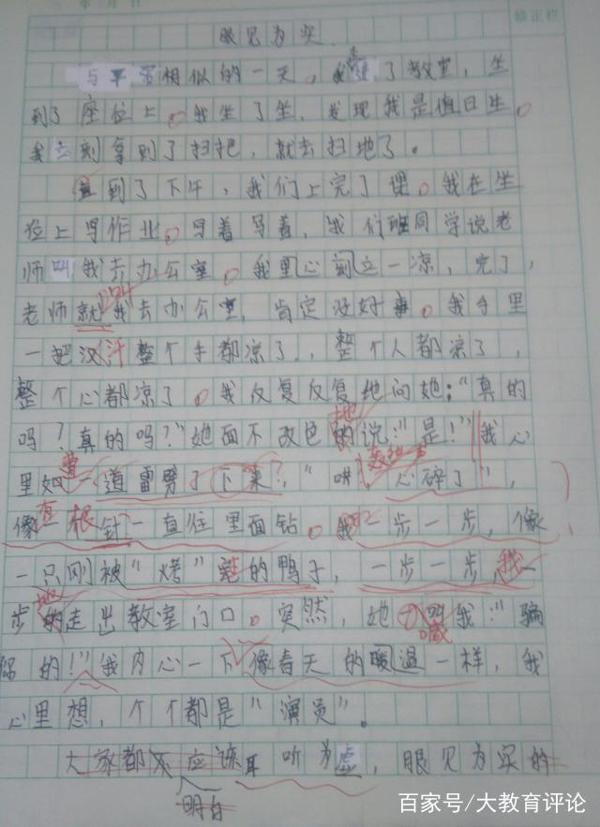 眼见为实
与平常相似的一天,我进了教室,坐
到了座位上。我坐了坐,发现我是值日生。
我立刻拿到了扫把,就去扫地了。
直到了下午,我们上完了课。我在坐
位上写作业。写着写着,我们班同学说老
师叫我去办公室。我里心刻立一凉,完了,
老师就叫我去办公室,肯定没好事。我手里
一把汉汗整个手都凉了,整个人都凉了,
整个心都凉了。我反复反复地问她:“真的
吗?真的吗?”她面不改色的地说:“是!”我心
里如一道雷劈了下来,“哄,心碎了”,
像有一根针一直往里面钻。我一步一步,像
一只刚被“烤”的鸭子,一步一步,我一
步的地走出教室门口。突然,她叫我:“骗
喊
你的!”我内心一下像春天的暖温一样,我
心里想,个个都是“演员”。
大家都不应该耳听为虚,眼见为实的
明白
百家号/大教育评论